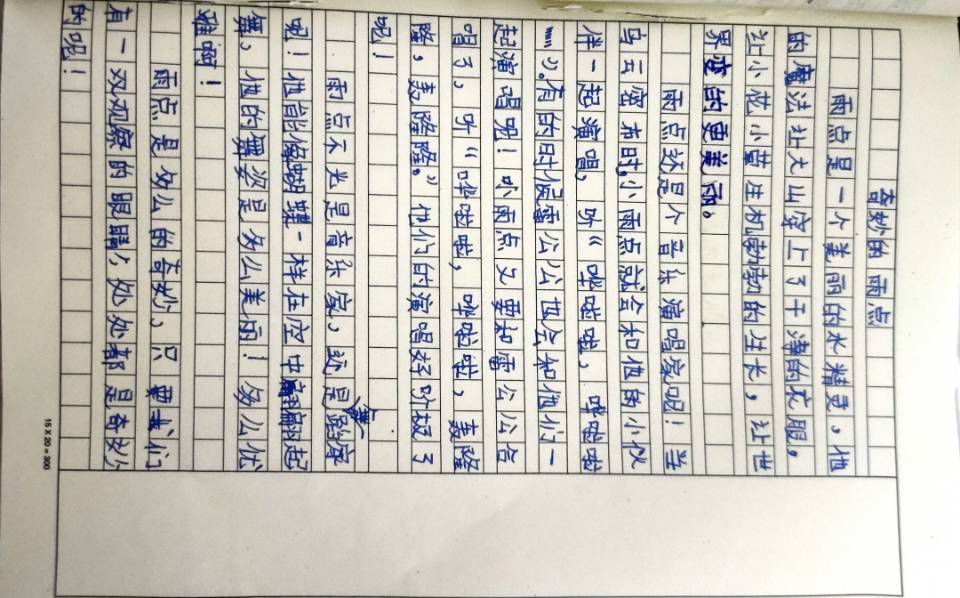 奇妙的雨点
雨点是一个美丽的水精灵。他
的魔法让大山穿上了干净的衣服。
让小花小草生机勃勃的生长，让世
界变的更美丽。
雨点还是个音乐演唱家呢！当
乌云密布时，小雨点就会和他的小伙
伴一起演唱，听“哗啦啦，哗啦啦
……”。有的时候雷公公也会和他们一
起演唱呢！小雨点又要和雷公公合
唱了，听“哗啦啦，哗啦啦，轰隆
隆，轰隆隆。”他们的演唱好听极了
呢！
雨点不光是音乐家，还是舞蹈家
呢！他能像蝴蝶一样在空中翩翩起
舞，他的舞姿是多么美丽！多么优
雅啊！
雨点是多么的奇妙，只要我们
有一双观察的眼睛，处处都是奇妙
的呢！
15×20=300